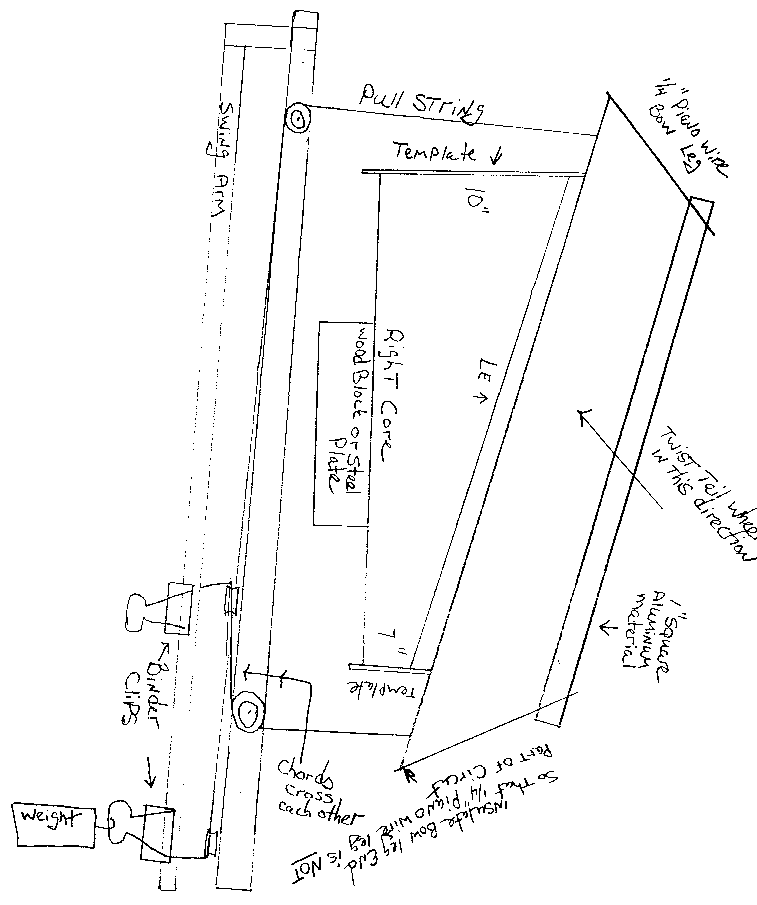 Pull String
1/4" Piano wire
Bow Leg
Swing Arm
Template
10"
Right Core
wood Block or Steel
Plate
LE
Twist Tail wheel
in This direction
1" Square
Aluminum
material
7"
Template
Binder
Clips
Chords
cross
each other
weight
insulate Bow leg End
So that 1/4" Piano wire leg is NOT
Part of Circut